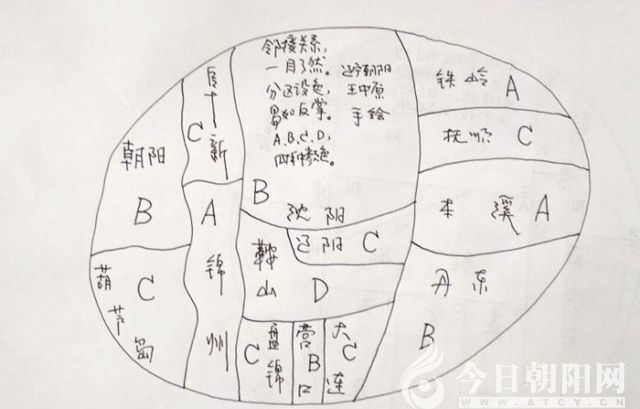 邻接关系,
一目了然。
分区设色,
易如反掌。
A、B、C、D,
四种颜色。
辽宁朝阳
王中原
手绘
铁岭 A
抚顺 C
阜新
C
朝阳
B
B
沈阳
本溪 A
A
锦州
辽阳 C
鞍山 D
丹东
B
葫芦岛
C
C
盘锦
营口
B
大连
C
今日朝阳网
WWW.ATCY.CN